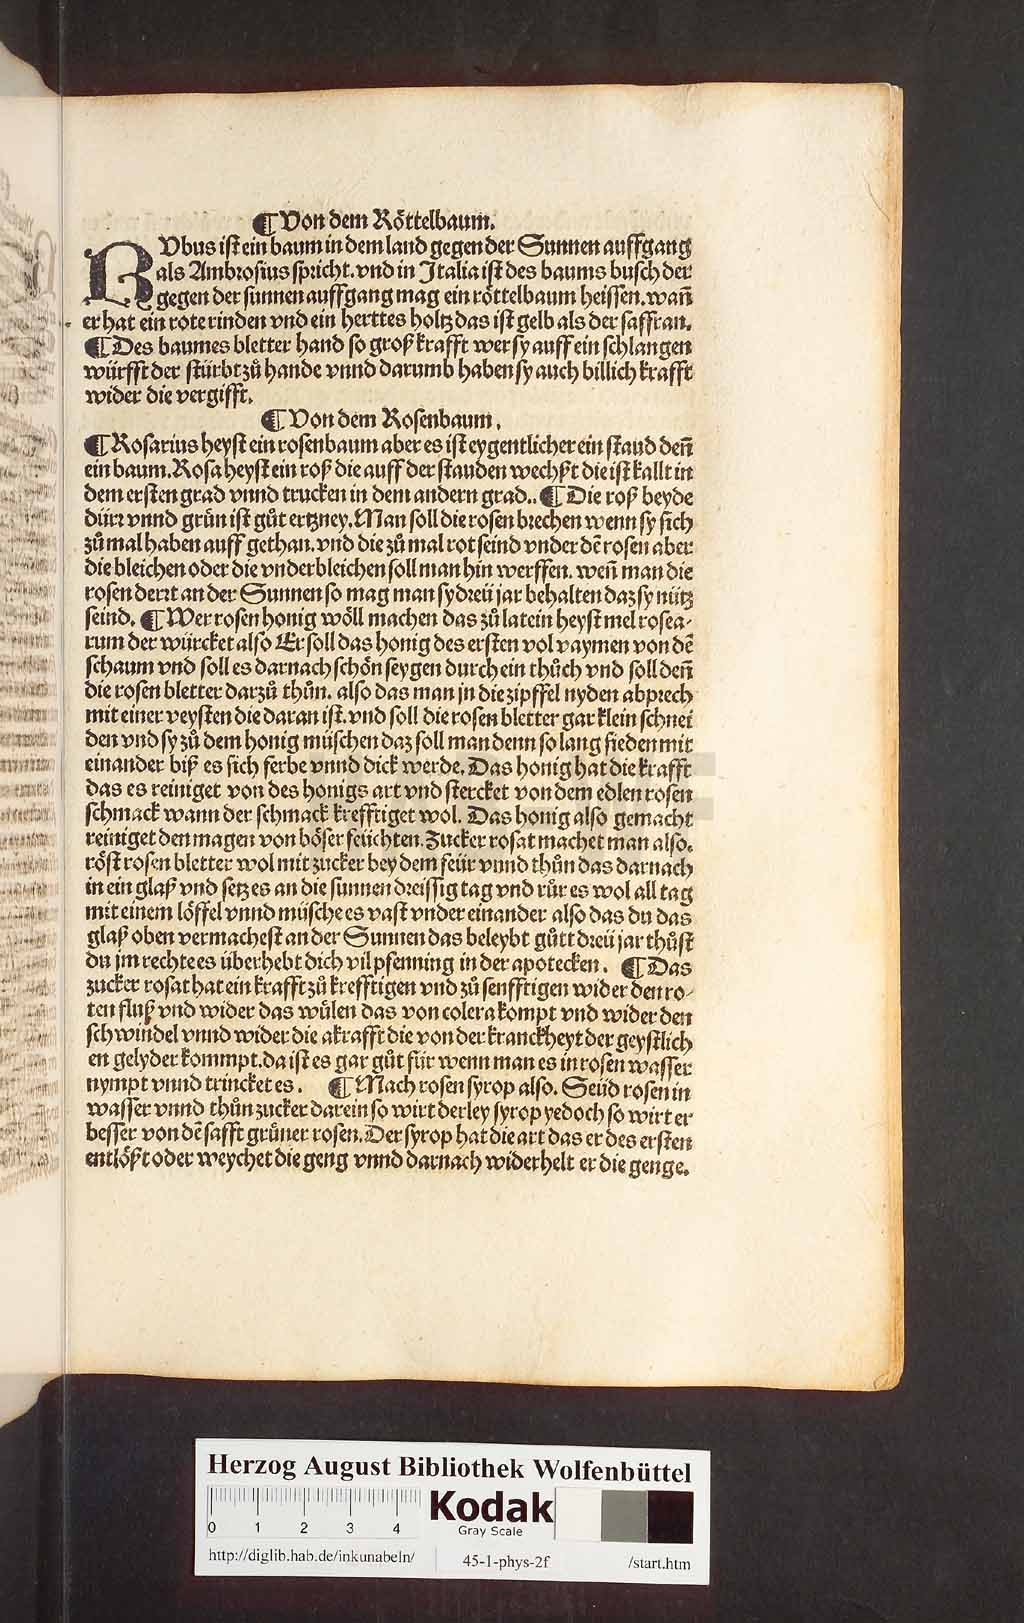 ¶ Von dem Röttelbaum.
RVbus ist ein baum in dem land gegen der Sunnen auffgang
als Ambrosius spricht. vnd in Italia ist des baums busch der
gegen der sunnen auffgang mag ein röttelbaum heissen. wañ
er hat ein rote rinden vnd ein herttes holtz das ist gelb als der saffran.
¶ Des baumes bletter hand so groß krafft wer sy auff ein schlangen
würfft der stürbt zů hande vnnd darumb haben sy auch billich krafft
wider die vergifft.
¶ Von dem Rosenbaum.
¶ Rosarius heyst ein rosenbaum aber es ist eygentlicher ein staud deñ
ein baum. Rosa heyst ein roß die auff der stauden wechßt die ist kallt in
dem ersten grad vnnd trucken in dem andern grad.. ¶ Die roß beyde
dürr vnnd grün ist gůt ertzney. Man soll die rosen brechen wenn sy sich
zů mal haben auff gethan. vnd die zů mal rot seind vnder dē rosen aber
die bleichen oder die vnderbleichen soll man hin werffen. weñ man die
rosen derrt an der Sunnen so mag man sy dreü jar behalten daz sy nütz
seind. ¶ Wer rosen honig wöll machen das zů latein heyst mel rosea-
rum der würcket also Er soll das honig des ersten vol vaymen von dē
schaum vnd soll es darnach schön seygen durch ein thůch vnd soll deñ
die rosen bletter darzů thůn. also das man jn die zipffel nyden abprech
mit einer veysten die daran ist. vnd soll die rosen bletter gar klein schnei
den vnd sy zů dem honig müschen daz soll man denn so lang sieden mit
einander biß es sich ferbe vnnd dick werde. Das honig hat die krafft
das es reiniget von des honigs art vnd stercket von dem edlen rosen
schmack wann der schmack krefftiget wol. Das honig also gemacht
reiniget den magen von böser feüchten. Zucker rosat machet man also.
röst rosen bletter wol mit zucker bey dem feür vnnd thůn das darnach
in ein glaß vnd setz es an die sunnen dreissig tag vnd rür es wol all tag
mit einem löffel vnnd müsche es vast vnder einander also das du das
glaß oben vermachest an der Sunnen das beleybt gůtt dreü jar thůst
du jm rechte es überhebt dich vil pfenning in der apotecken. ¶ Das
zucker rosat hat ein krafft zů krefftigen vnd zů senfftigen wider den ro-
ten fluß vnd wider das wülen das von colera kompt vnd wider den
schwindel vnnd wider die akrafft die von der kranckheyt der geystlich
en gelyder kommpt. da ist es gar gůt für wenn man es in rosen wasser
nympt vnnd trincket es. ¶ Mach rosen syrop also. Seüd rosen in
wasser vnnd thůn zucker darein so wirt der ley syrop yedoch so wirt er
besser von dē safft grüner rosen. Der syrop hat die art das er des ersten
entlößt oder weychet die geng vnnd darnach widerhelt er die genge.
Herzog August Bibliothek Wolfenbüttel
0 1 2 3 4
Kodak
Gray Scale
http://diglib.hab.de/inkunabeln/ 45-1-phys-2f /start.htm